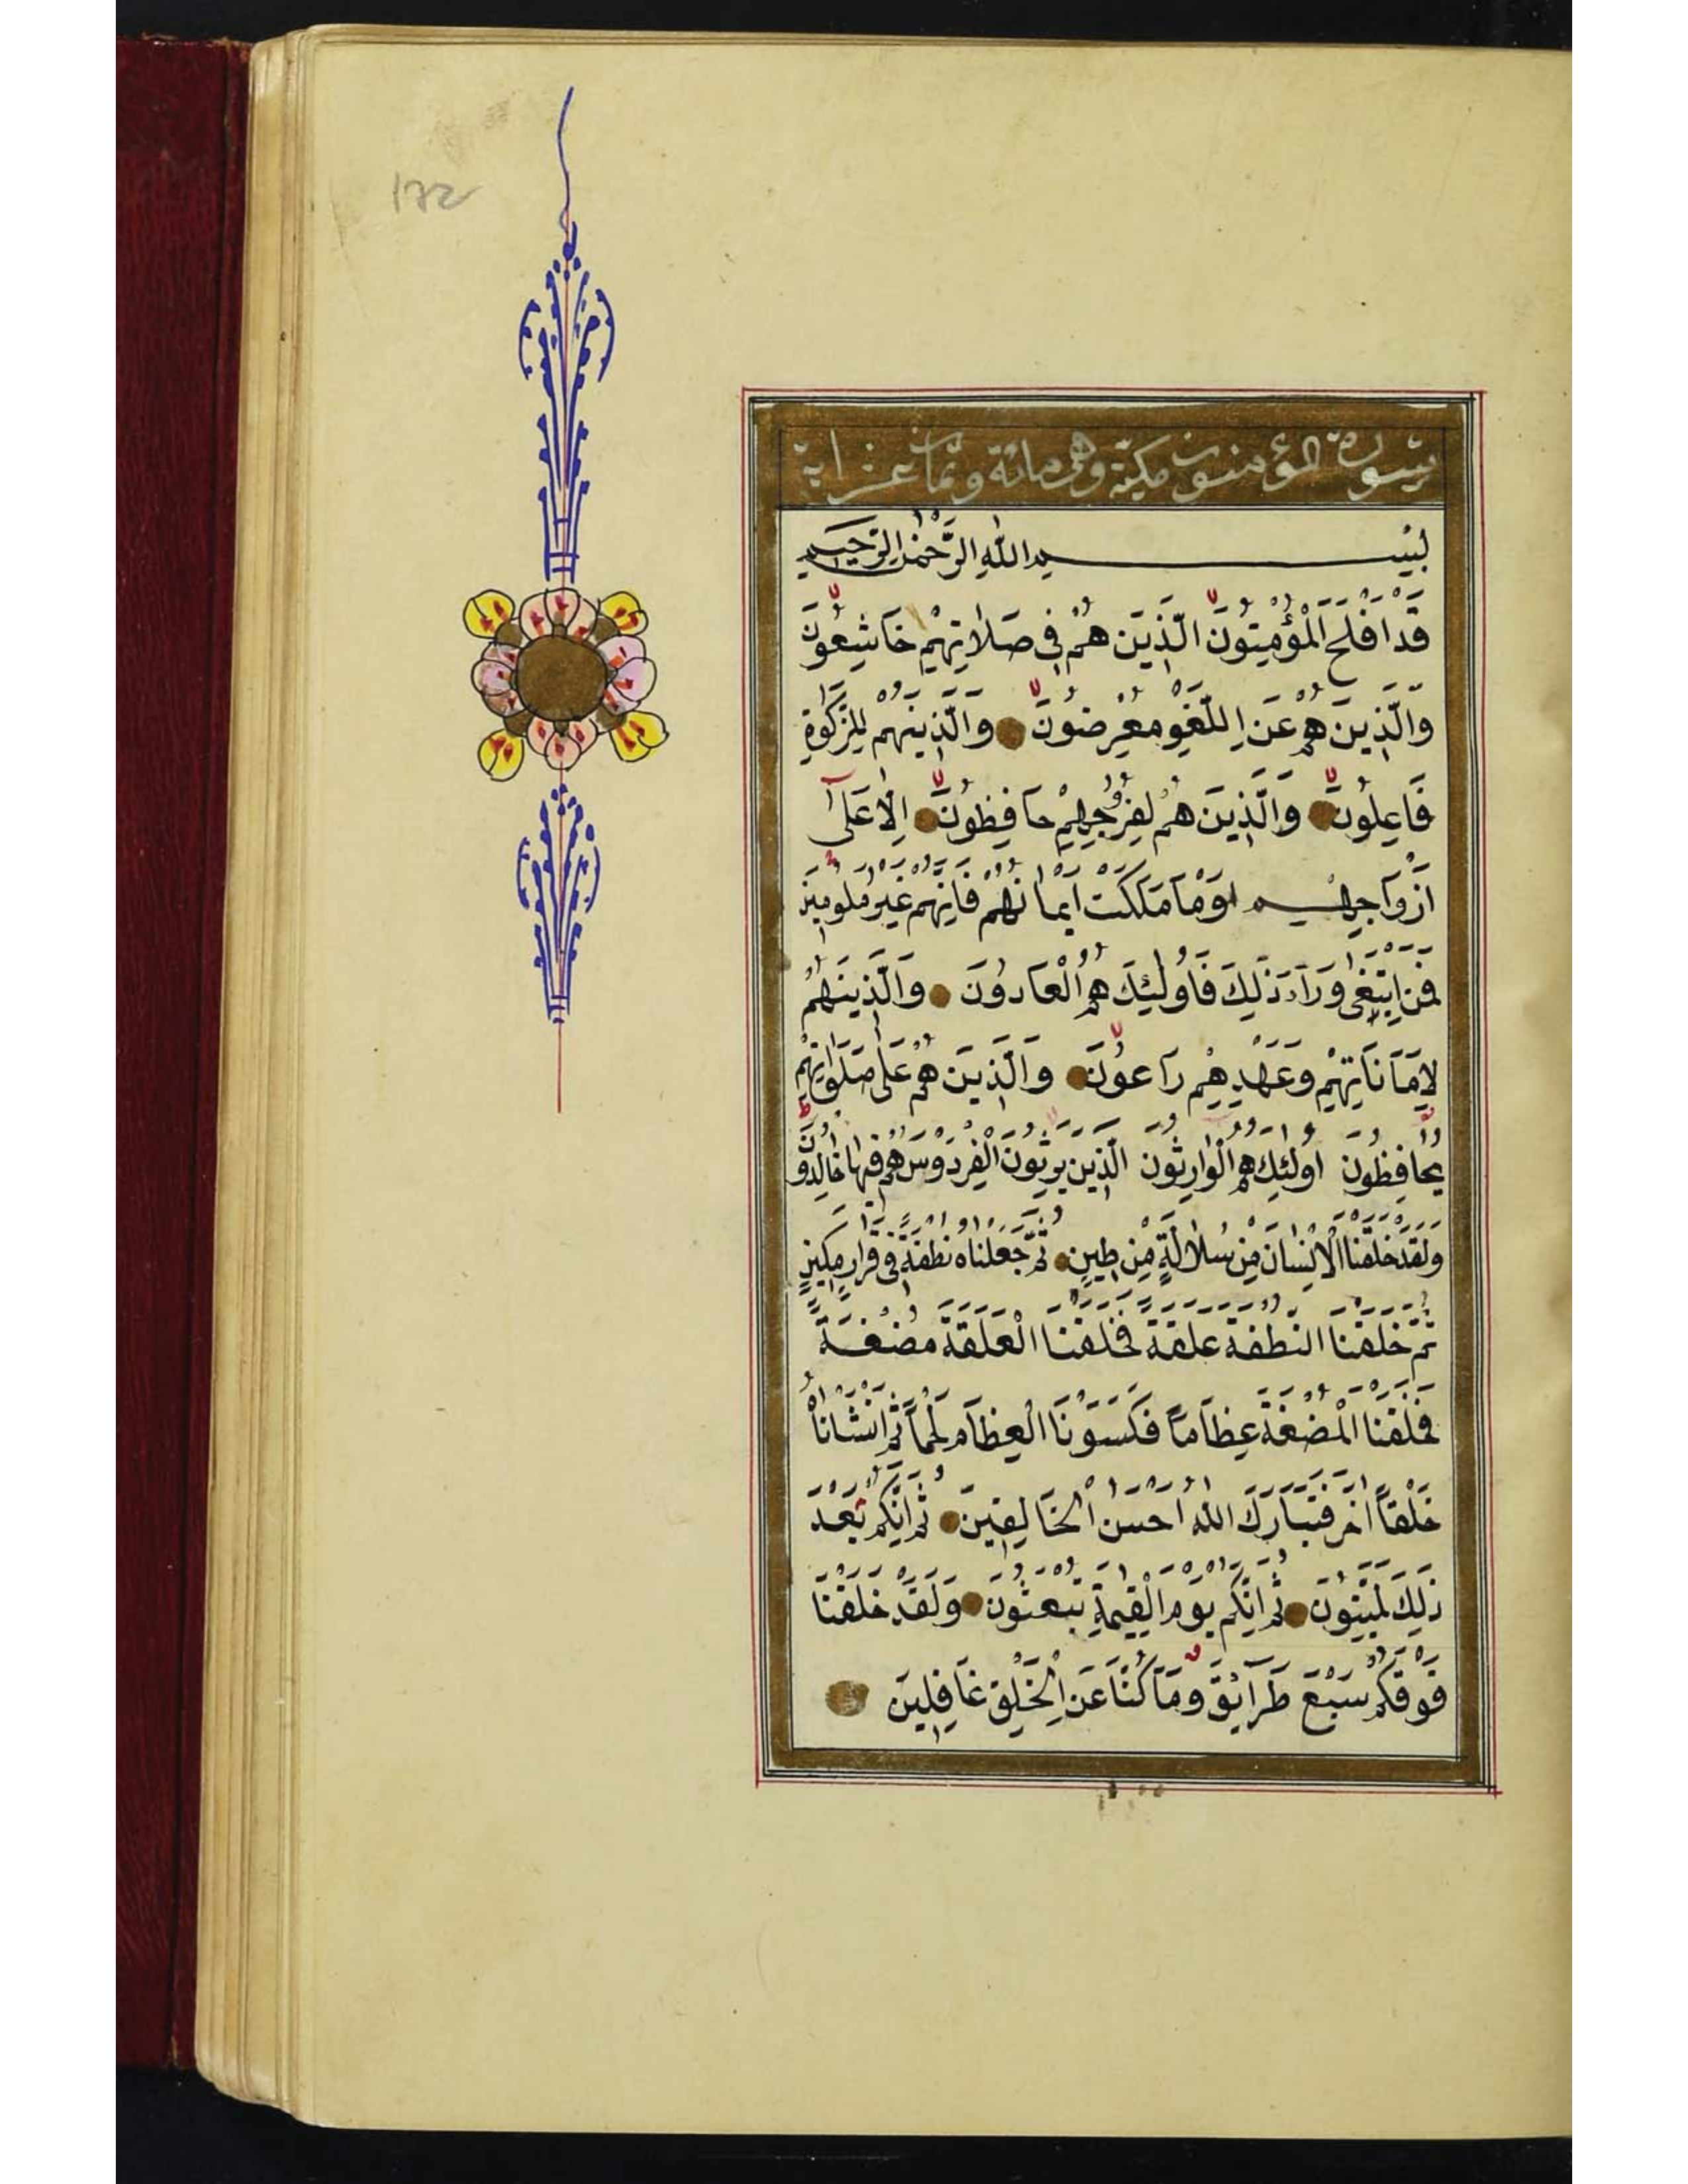 172
سورة المؤمنون مكية وهى مائة وثمان عشر اية
بِسْمِ اللّٰهِ الرَّحْمٰنِ الرَّحِيمِ
قَدْ اَفْلَحَ الْمُؤْمِنُونَ الَّذِينَ هُمْ فِى صَلَاتِهِمْ خَاشِعُونَ
وَالَّذِينَ هُمْ عَنِ اللَّغْوِ مُعْرِضُونَ وَالَّذِينَهُمْ لِلزَّكٰوةِ
فَاعِلُونَ وَالَّذِينَ هُمْ لِفُرُوجِهِمْ حَافِظُونَ اِلَّا عَلٰٓى
اَزْوَاجِهِمْ اَوْ مَا مَلَكَتْ اَيْمَانُهُمْ فَاِنَّهُمْ غَيْرُ مَلُومِينَ
فَمَنِ ابْتَغٰى وَرَآءَ ذٰلِكَ فَاُولٰئِكَ هُمُ الْعَادُونَ وَالَّذِينَهُمْ
لِاَمَانَاتِهِمْ وَعَهْدِهِمْ رَاعُونَ وَالَّذِينَ هُمْ عَلٰى صَلَوَاتِهِمْ
يُحَافِظُونَ اُولٰئِكَ هُمُ الْوَارِثُونَ الَّذِينَ يَرِثُونَ الْفِرْدَوْسَ هُمْ فِيهَا خَالِدُونَ
وَلَقَدْ خَلَقْنَا الْاِنْسَانَ مِنْ سُلَالَةٍ مِنْ طِينٍ ثُمَّ جَعَلْنَاهُ نُطْفَةً فِى قَرَارٍ مَكِينٍ
ثُمَّ خَلَقْنَا النُّطْفَةَ عَلَقَةً فَخَلَقْنَا الْعَلَقَةَ مُضْغَةً
فَخَلَقْنَا الْمُضْغَةَ عِظَامًا فَكَسَوْنَا الْعِظَامَ لَحْمًا ثُمَّ اَنْشَاْنَاهُ
خَلْقًا اٰخَرَ فَتَبَارَكَ اللّٰهُ اَحْسَنُ الْخَالِقِينَ ثُمَّ اِنَّكُمْ بَعْدَ
ذٰلِكَ لَمَيِّتُونَ ثُمَّ اِنَّكُمْ يَوْمَ الْقِيٰمَةِ تُبْعَثُونَ وَلَقَدْ خَلَقْنَا
فَوْقَكُمْ سَبْعَ طَرَآئِقَ وَمَا كُنَّا عَنِ الْخَلْقِ غَافِلِينَ